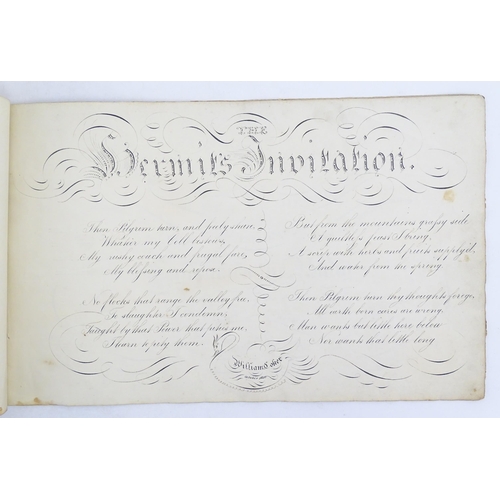 THE
Hermits Invitation.
Then Pilgrim turn, and
Whatier my Cell bestows,
My rushy couch and frugal fare,
My blessing and repose.
No flocks that range the valley free,
To slaughter I condemn,
Taught by that Power that pities me,
I learn to pity them.
But from the mountains grassy side
A guiltless feast I bring,
A scrip with herbs and fruits supply'd,
And water from the spring.
Then Pilgrim turn thy thoughts forego,
All earth born cares are wrong,
Man wants but little here below
Nor wants that little long
William